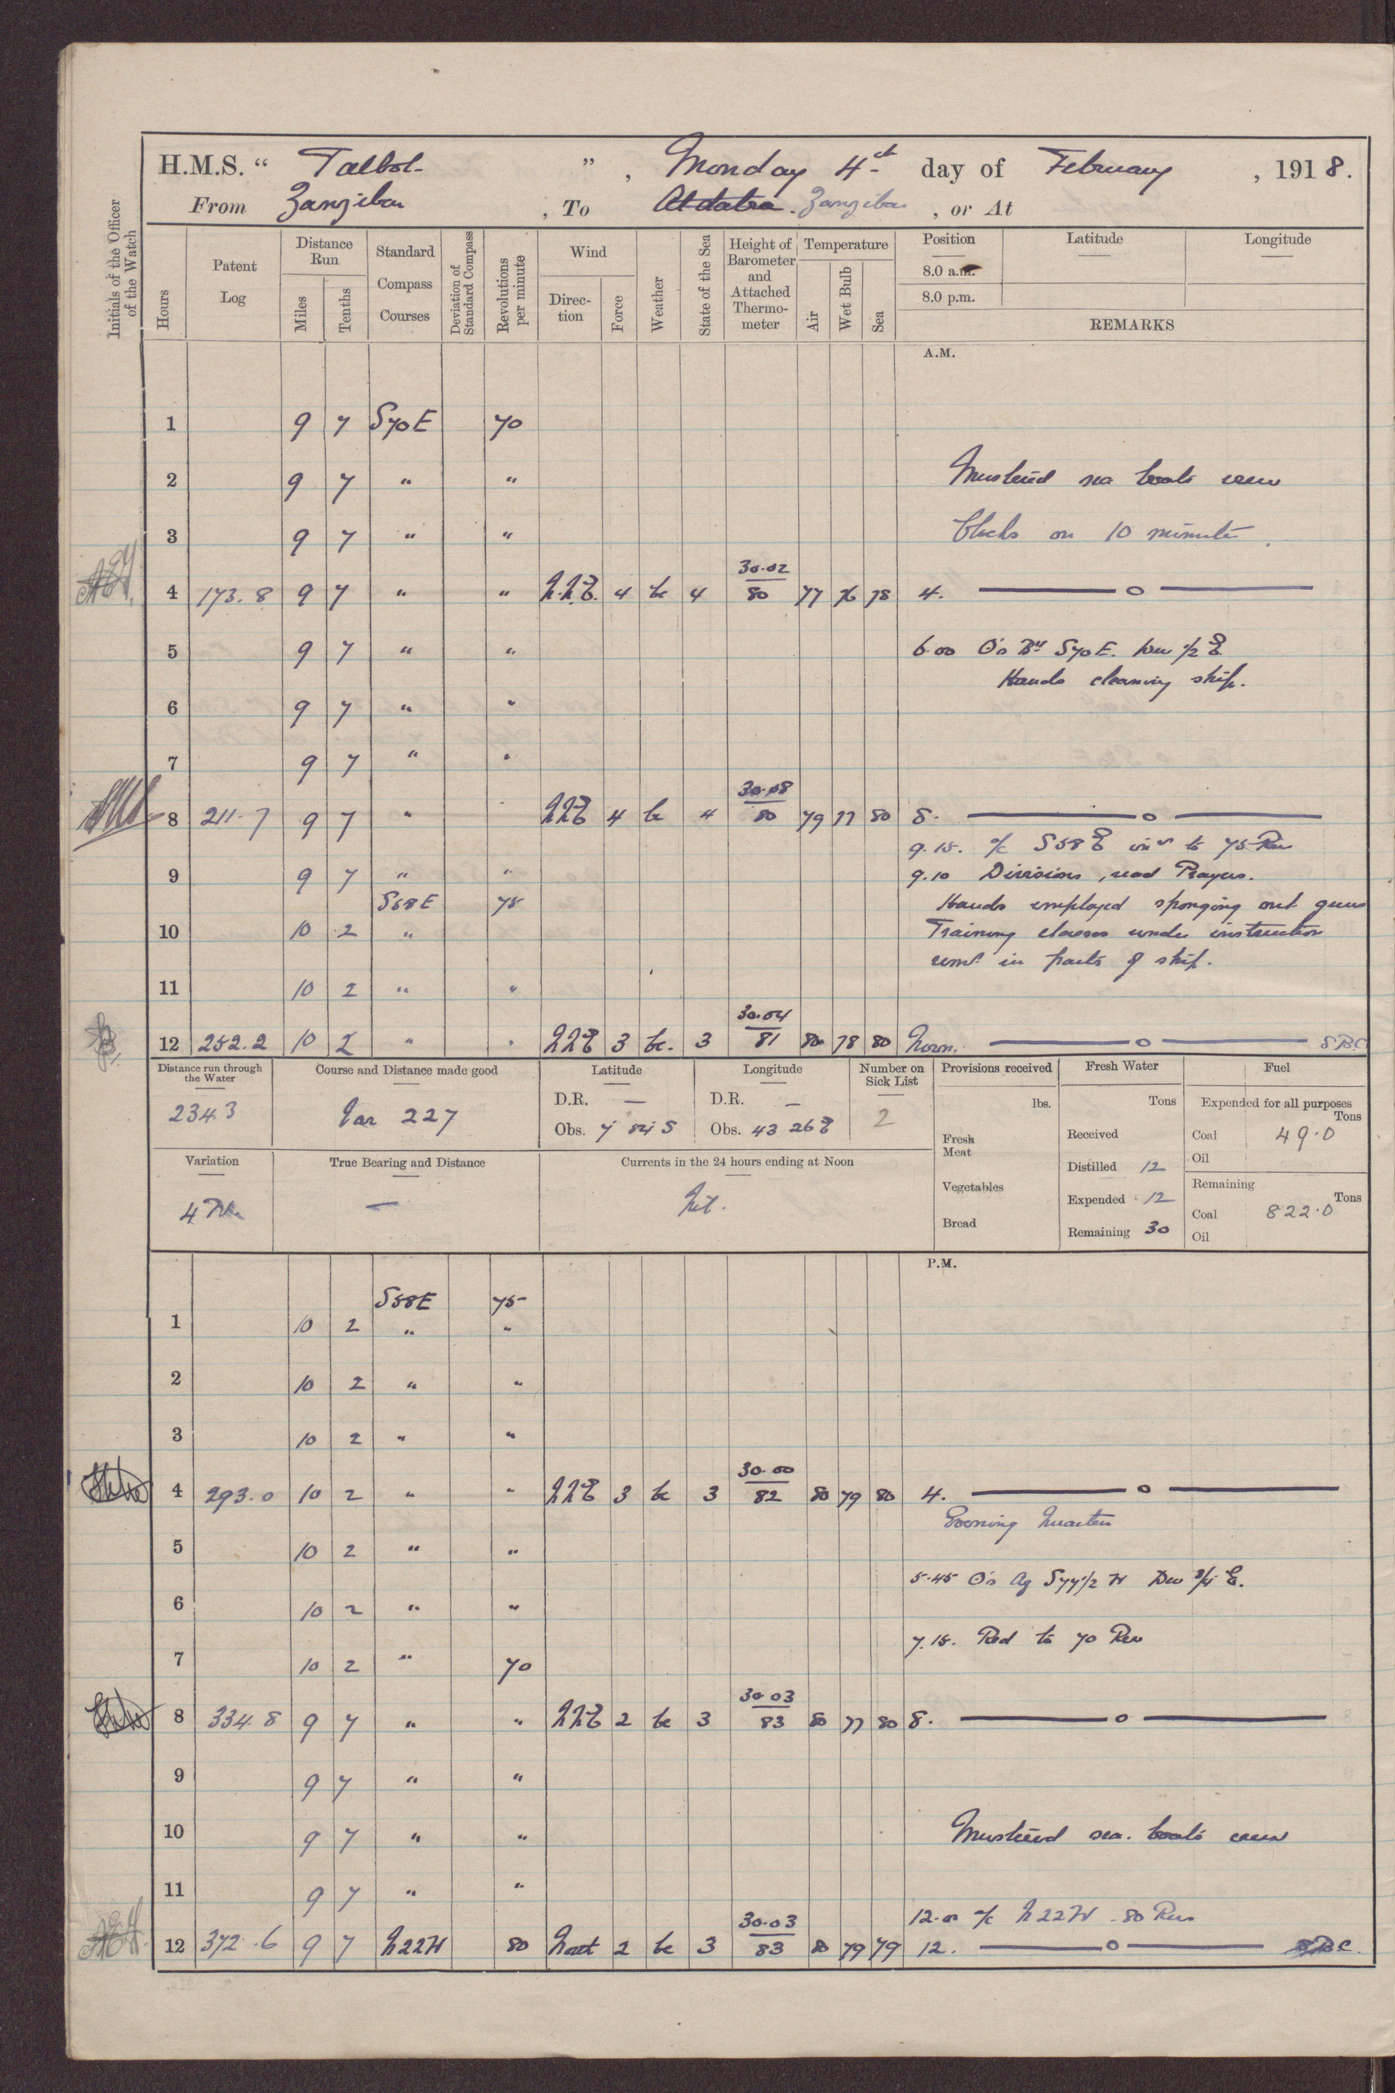 H.M.S. “ Talbot ” , Monday 4th day of February , 1918.
From Zanzibar , To Aldabra. Zanzibar , or At
Initials of the Officer of the Watch
Hours
Patent Log
Distance Run
Miles
Tenths
Standard Compass Courses
Deviation of Standard Compass
Revolutions per minute
Wind
Direction
Force
Weather
State of the Sea
Height of Barometer and Attached Thermometer
Temperature
Air
Wet Bulb
Sea
Position Latitude Longitude
8.0 a.m.
8.0 p.m.
REMARKS
A.M.
1 9 7 S70E 70
2 9 7 " " Mustered sea boats crew
3 9 7 " " Clocks on 10 minutes.
4 173.8 9 7 " " N.N.E. 4 bc 4 30.02 80 77 76 78 4. ——o——
5 9 7 " " 6.00 O's Bg S70E. Dev 1/2 E
Hands cleaning ship.
6 9 7 " "
7 9 7 " "
8 211.7 9 7 " NNE 4 bc 4 30.08 80 79 77 80 8. ——o——
9.15. a/c S58E incr to 75 Rev
9 9 7 " " 9.10 Divisions, read Prayers.
S58E 75 Hands employed sponging out guns
10 10 2 " Training classes under instruction
remr in parts of ship.
11 10 2 " "
12 252.2 10 2 " " NNE 3 bc. 3 30.04 81 80 78 80 Noon. ——o——
Distance run through the Water
2343
Course and Distance made good
Var 227
Latitude
D.R. —
Obs. 7 04 S
Longitude
D.R. —
Obs. 43 26 E
Number on Sick List
2
Provisions received
lbs.
Fresh Meat
Vegetables
Bread
Fresh Water
Tons
Received
Distilled 12
Expended 12
Remaining 30
Fuel
Expended for all purposes
Tons
Coal 49.0
Oil
Remaining
Tons
Coal 822.0
Oil
Variation
True Bearing and Distance
—
Currents in the 24 hours ending at Noon
Nil.
P.M.
S58E 75
1 10 2 " "
2 10 2 " "
3 10 2 " "
4 293.0 10 2 " " NNE 3 bc 3 30.00 82 80 79 80 4. ——o——
Evening Quarters
5 10 2 " "
5.45 O's Az S77 1/2 W Dev 3/4 E.
6 10 2 " "
7.15. Red to 70 Rev
7 10 2 " 70
8 334.8 9 7 " " NNE 2 bc 3 30.03 83 80 77 80 8. ——o——
9 9 7 " "
10 9 7 " " Mustered sea boats crew
11 9 7 " "
12.0 a/c N22W 80 Revs
12 372.6 9 7 N22W 80 North 2 bc 3 30.03 83 80 79 79 12. ——o——